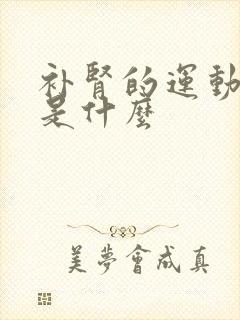 补腎的運動
是什麼
美夢會成真